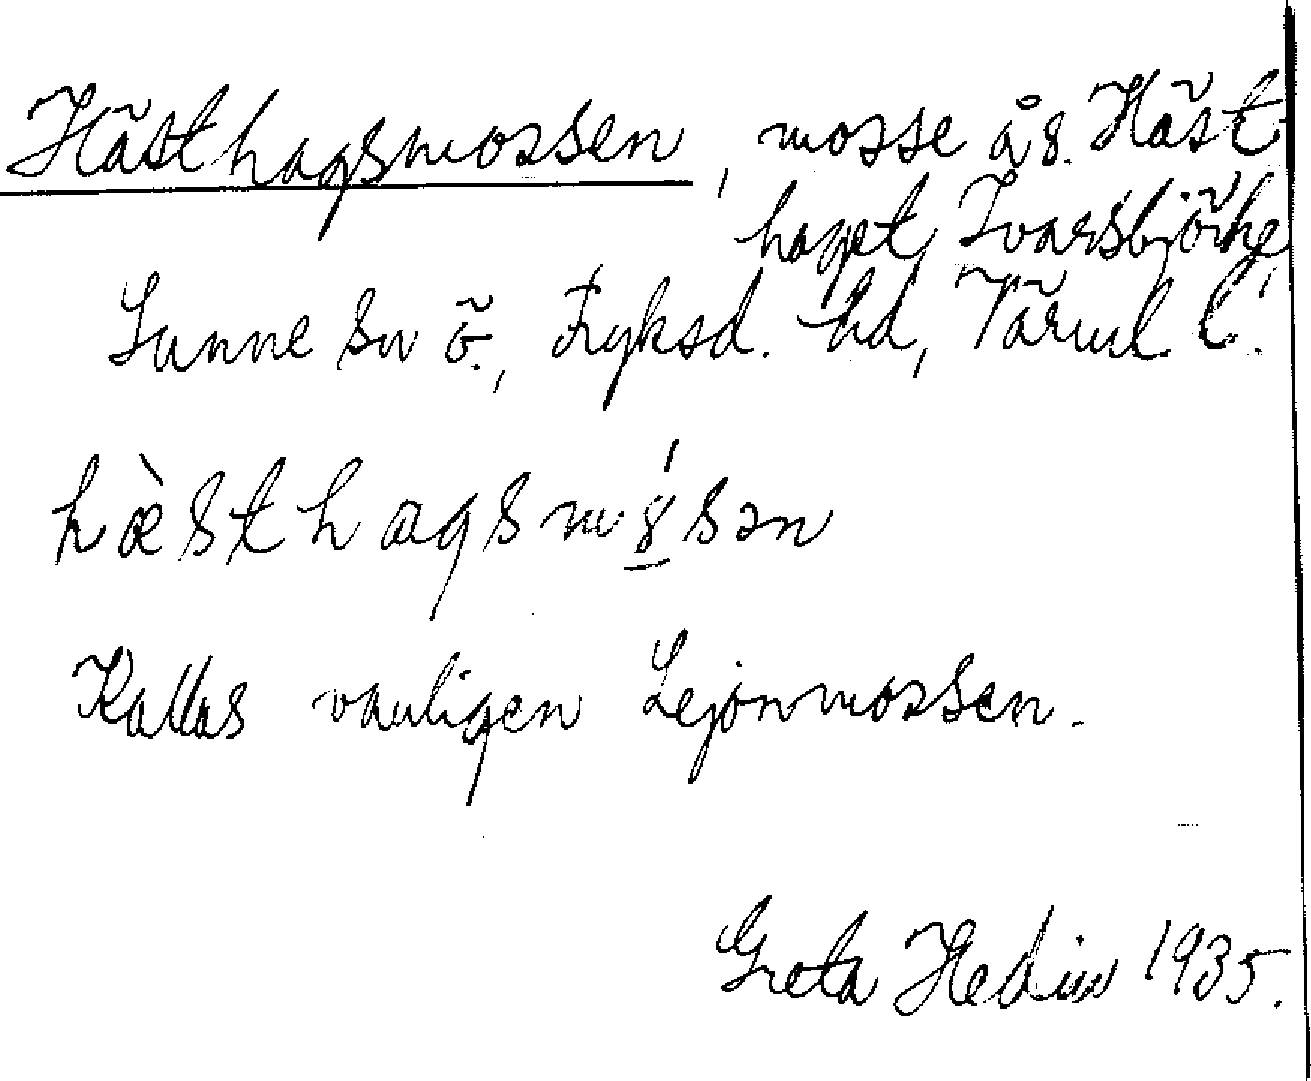 Hästhagsmossen, mosse å s. Häst-
haget, Ivarsbjörke,
Sunne sn ö., Fryksd. hd, Värml. l.
hæ̀sthagsmó̱sən
Kallas vanligen Lejonmossen.
Greta Hedin 1935.